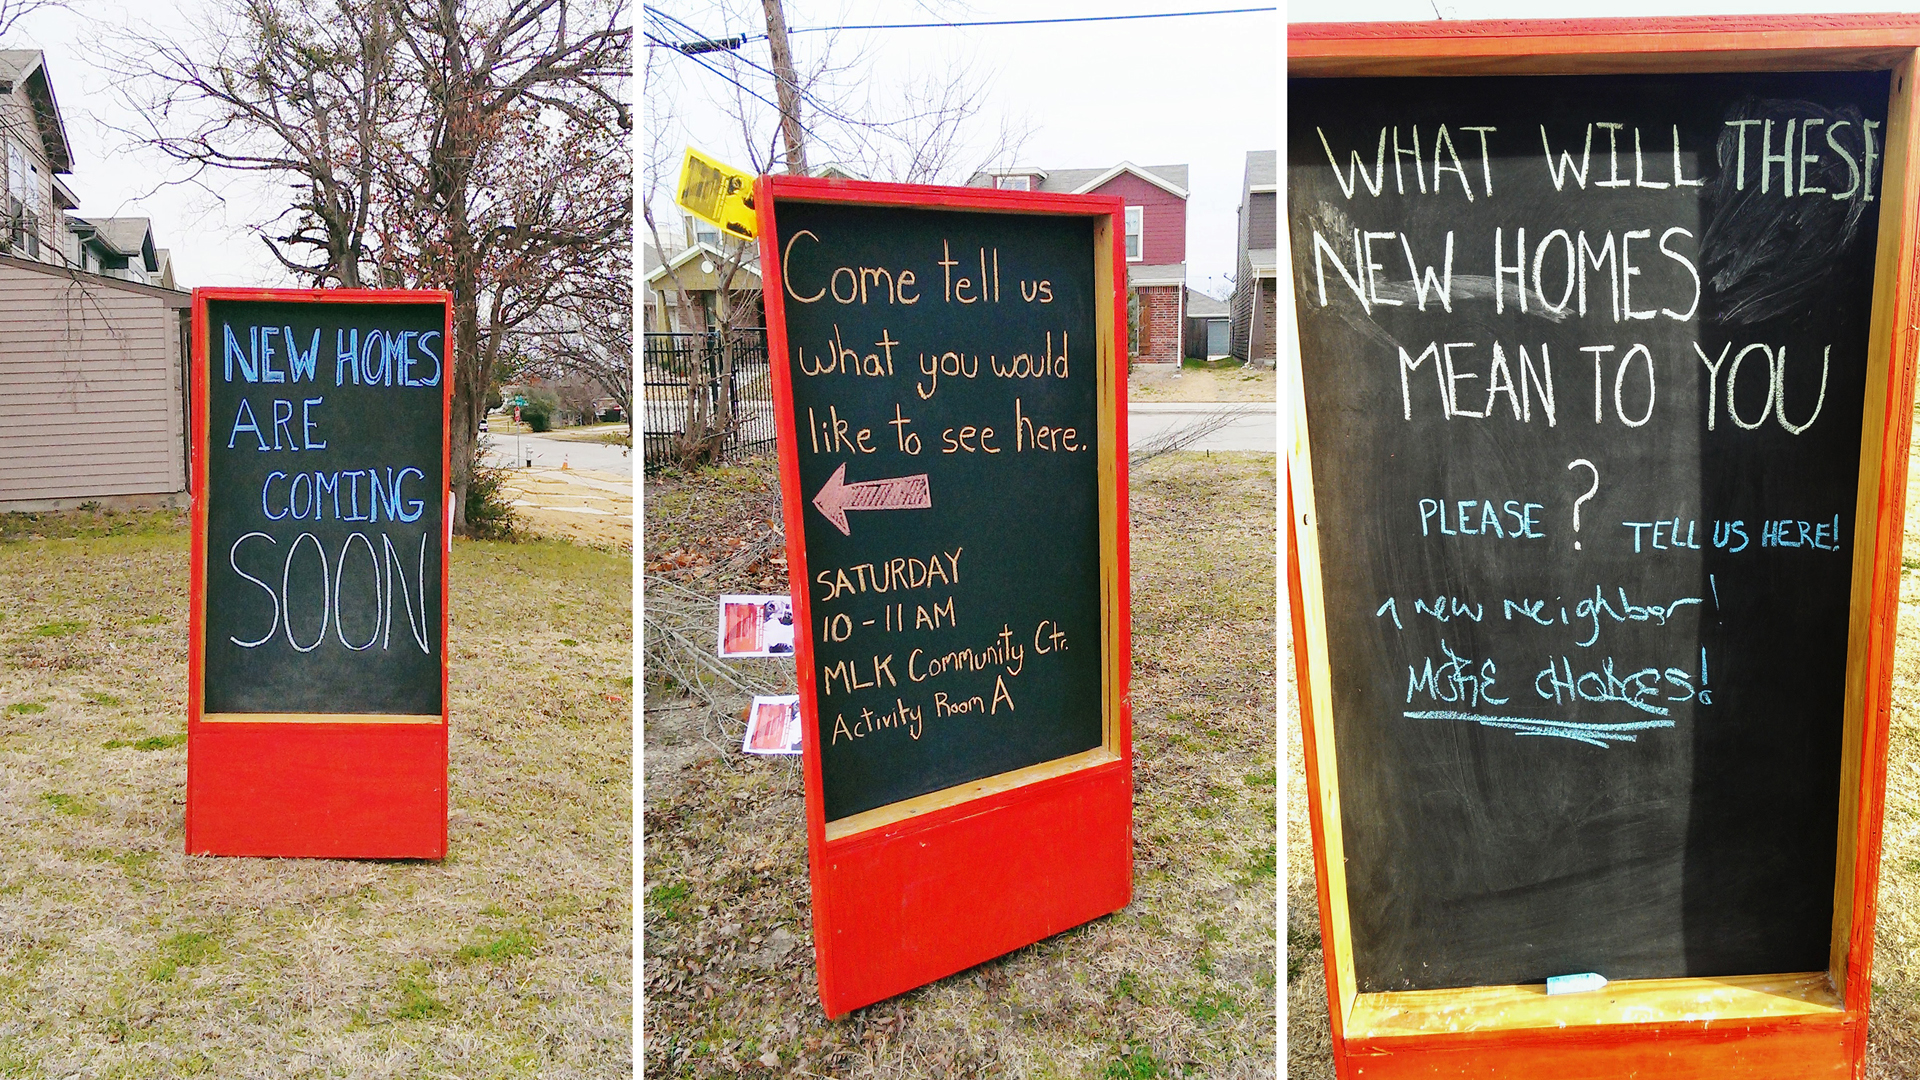 NEW HOMES
ARE
COMING
SOON
Come tell us
what you would
like to see here.
SATURDAY
10 - 11 AM
MLK Community Ctr.
Activity Room A
WHAT WILL THESE
NEW HOMES
MEAN TO YOU
?
PLEASE TELL US HERE!
1 new neighbor!
MORE CHOICES!